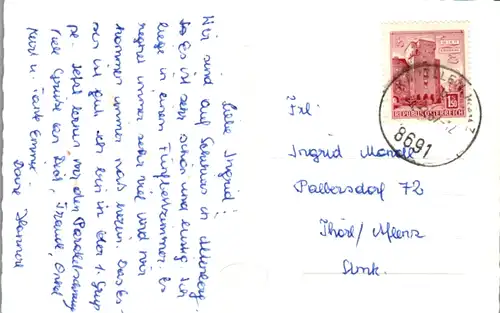 Liebe Ingrid!
Wir sind auf Schikurs in
So Es ist sehr schön und lustig. Ich
liege in einem Fünfbettzimmer. Es
regnet immer sehr viel und wir
kommen immer nass heim. Das Es-
sen ist gut. Ich bin in der 1. Grup
pe. Jetzt lernen wir den Parallelschwung
Viele Grüße an Dich, Frauli, Onkel
Karl u. Tante Emmi.
Deine
Frl.
Ingrid
Palbersdorf 72
Thörl/Aflenz
Stmk.
1.50
REPUBLIK ÖSTERREICH
8691